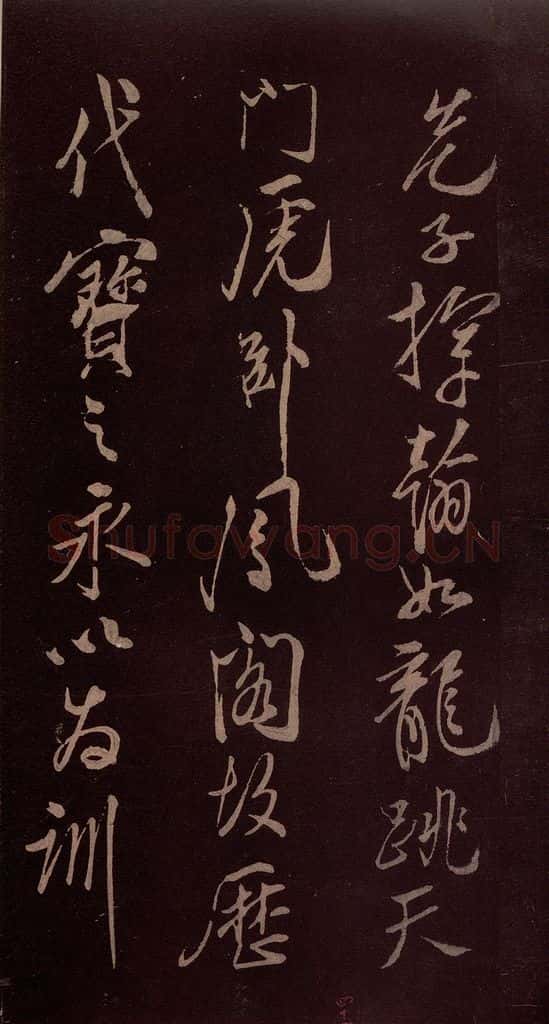 先子揮翰如龍跳天
門虎臥鳳閣故歷
代寶之永以為訓
Shufawang.CN